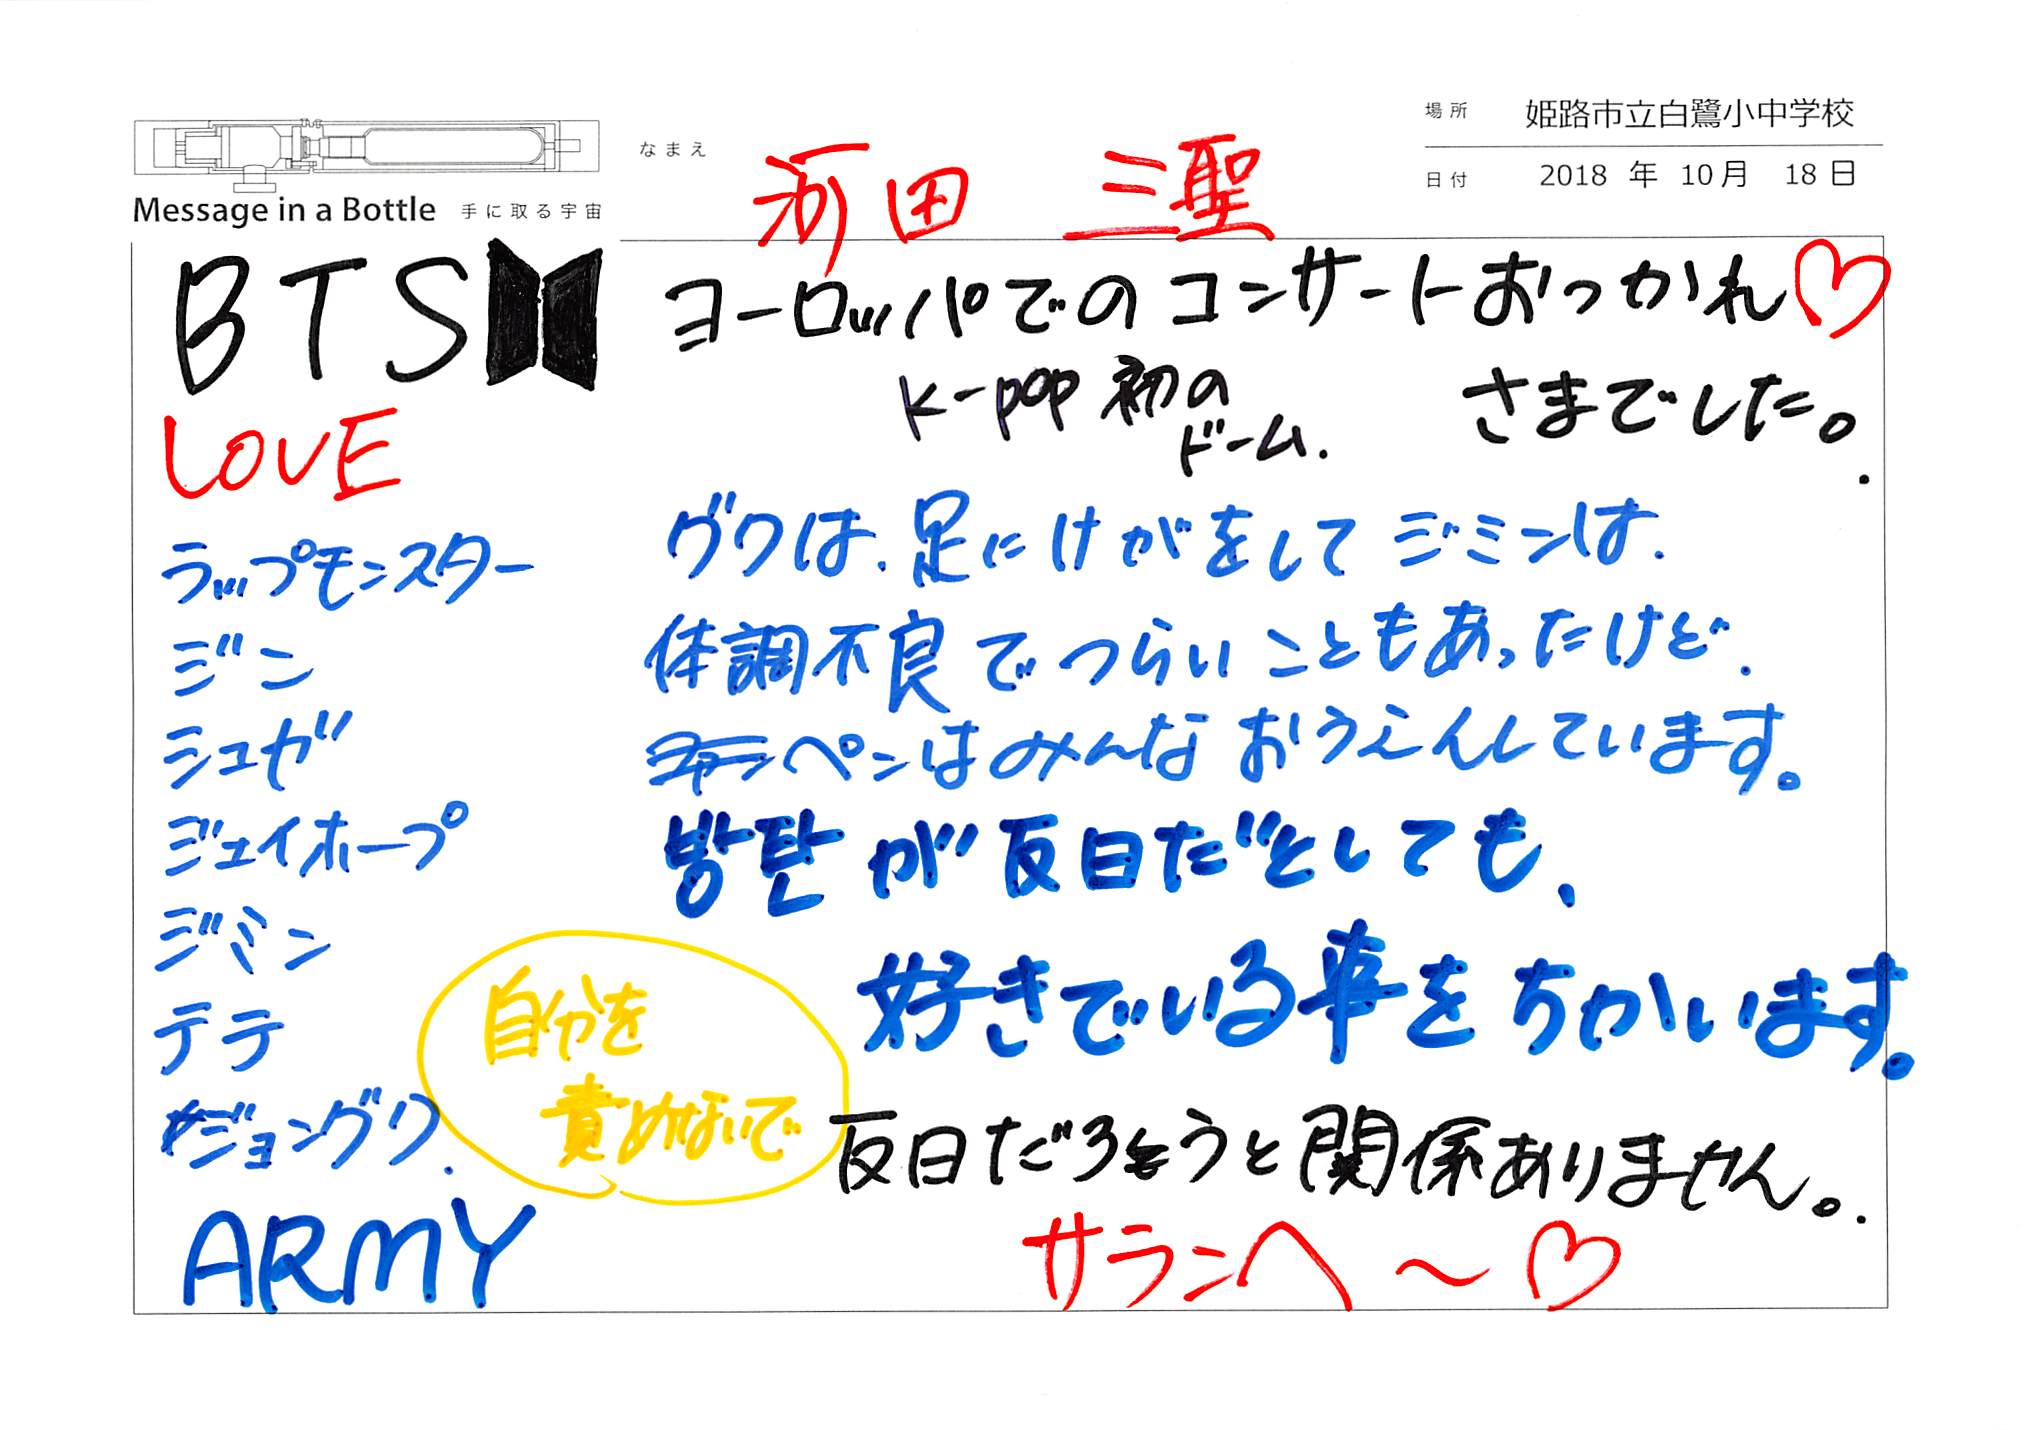 場所 姫路市立白鷺小中学校
なまえ 河田 三聖
日付 2018 年 10月 18日
Message in a Bottle 手に取る宇宙
BTS
LOVE
ラップモンスター
ジン
シュガ
ジェイホープ
ジミン
テテ
ジョングク.
ARMY
ヨーロッパでのコンサートおつかれ♡
さまでした。
K-pop 初の
ドーム.
グクは、足にけがをして ジミンは、
体調不良でつらいこともあったけど、
ペンはみんなおうえんしています。
방탄が反日だとしても、
好きでいる事をちかいます。
自分を
責めないで
反日だろうと関係ありません。
サランヘ～♡